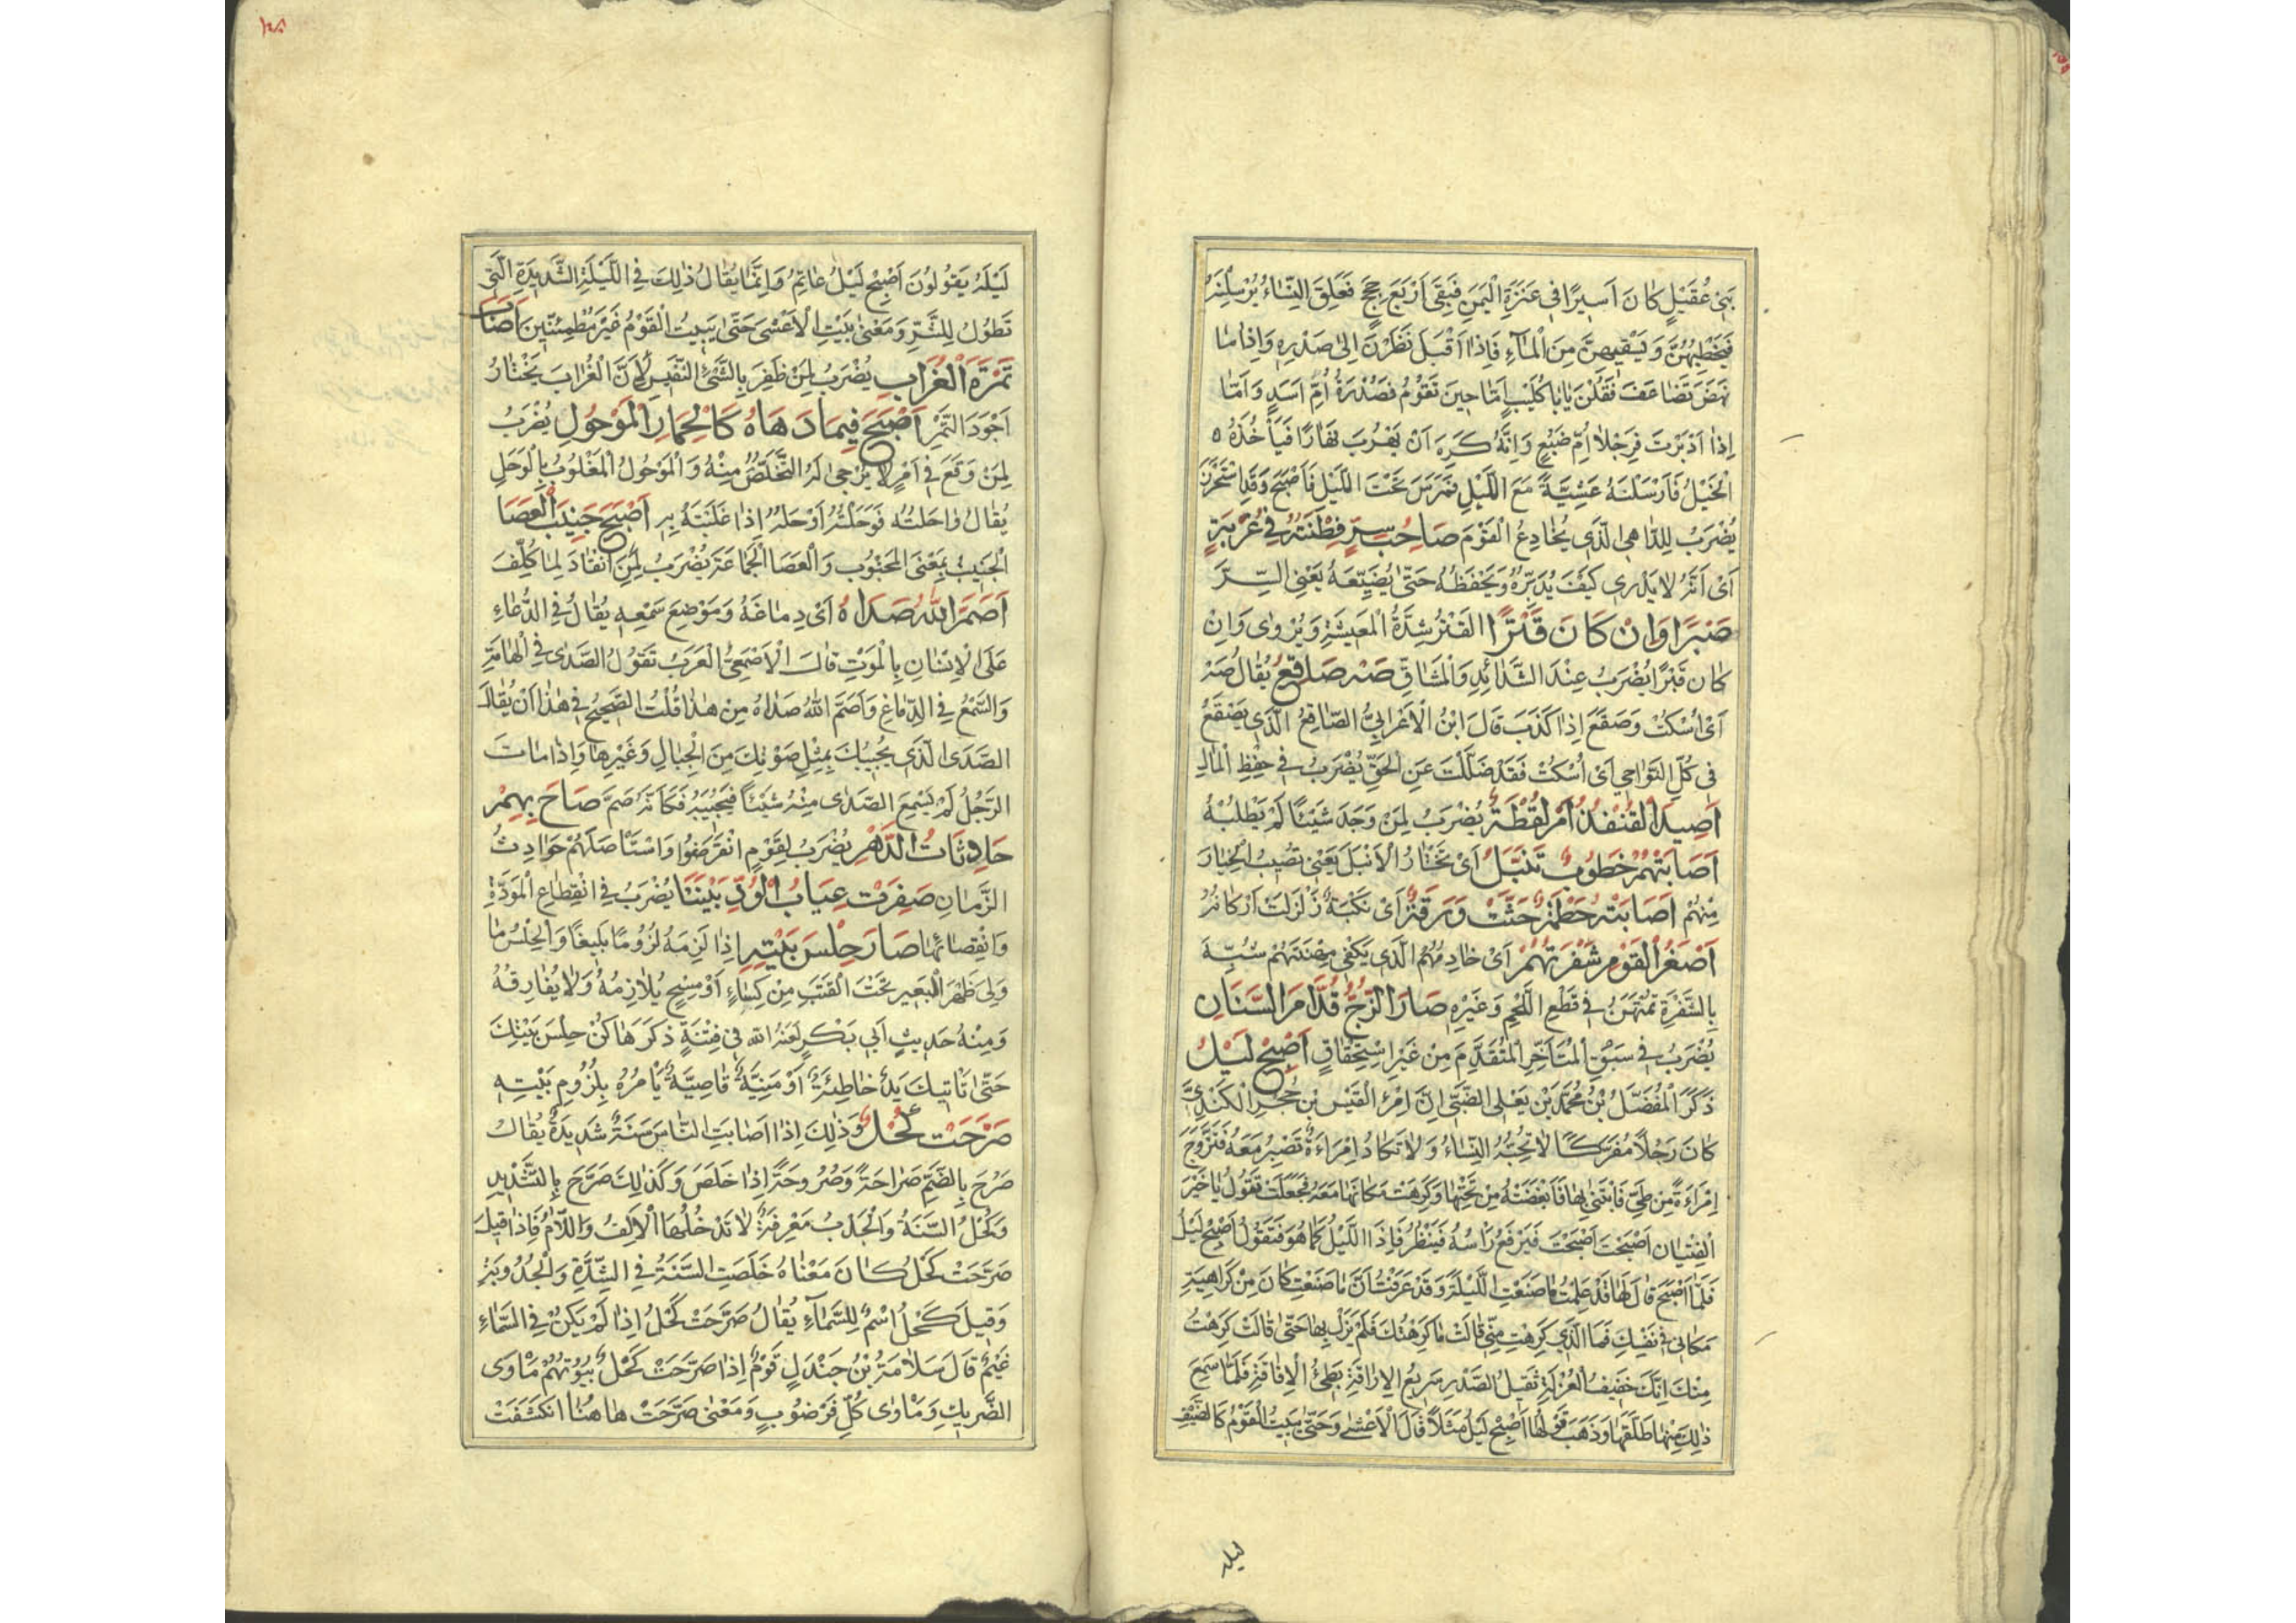 بَنِي عُقَيْلٍ كَانَ اَسِيرًا فِي عَنَزَةِ الْيَمَنِ فَبَقِىَ اَرْبَعَ حِجَجٍ فَعَلِقَ النِّسَاءُ يُرْسِلْنَهُ
فَيَحْطِبُهُنَّ وَيَسْقِيهِنَّ مِنَ الْمَاءِ فَاِذَا اَقْبَلَ نَظَرْنَ اِلىٰ صَدْرِهِ وَاِذَا مَا
نَهَضَ تَضَاعَفَ فَقُلْنَ يَا بَا كُلَيْبٍ اَمَّا حِينَ تَقُومُ فَصُدْرَةُ اُمِّ اَسَدٍ وَاَمَّا
اِذَا اَدْبَرْتَ فَرِجْلَا اُمِّ ضَبُعٍ وَاِنَّهُ كَرِهَ اَنْ يَهْرُبَ نَهَارًا فَيَأْخُذَهُ ٥
الْخَيْلُ فَاَرْسَلْنَهُ عَشِيَّةً مَعَ اللَّيْلِ فَمَرَسَ تَحْتَ اللَّيْلِ فَاَصْبَحَ وَقَدِ اسْتَحْرَزَ
يُضْرَبُ لِلدَّاهِي الَّذِي يُخَادِعُ الْقَوْمَ صَاحِبُ سِرٍّ فِطْنَتُهُ فِي غُرْبَةٍ
اَىْ اَنَّهُ لَا يَدْرِي كَيْفَ يُدَبِّرُهُ وَيَحْفَظُهُ حَتَّى يُضَيِّعَهُ يَعْنِي السِّرَّ
صَبْرًا وَاِنْ كَانَ قَتْرًا الْقَتْرُ شِدَّةُ الْمَعِيشَةِ وَيُرْوٰى وَاِنْ
كَانَ قَبْرًا يُضْرَبُ عِنْدَ الشَّدَائِدِ وَالْمَشَاقِّ صَهْ صَاقِعُ يُقَالُ صَهْ
اَىْ اُسْكُتْ وَصَقَعَ اِذَا كَذَبَ قَالَ ابْنُ الْاَعْرَابِيِّ الصَّاقِعُ الَّذِي يَصْقَعُ
فِي كُلِّ النَّوَاحِي اَىْ اُسْكُتْ فَقَدْ ضَلَلْتَ عَنِ الْحَقِّ يُضْرَبُ فِي حِفْظِ الْمَالِ
اَصِيدَ الْقُنْفُذُ اَمْ لُقْطَةٌ يُضْرَبُ لِمَنْ وَجَدَ شَيْئًا لَمْ يَطْلُبْهُ
اَصَابَتْهُمْ خَطُوبٌ تَنَبَّلُ اَىْ تَخْتَارُ الْاَنْبَلَ يَعْنِي تُصِيبُ الْخِيَارَ
مِنْهُمْ اَصَابَتْهُ حَطْمَةٌ حَتَّتْ وَرَقَهُ اَىْ نَكْبَةٌ زَلْزَلَتْ اَرْكَانَهُ
اَصْغَرُ الْقَوْمِ شَفْرَتُهُمْ اَىْ خَادِمُهُمُ الَّذِي يَكْفِي مِهْنَتَهُمْ شُبِّهَ
بِالشَّفْرَةِ تُمْتَهَنُ فِي قَطْعِ اللَّحْمِ وَغَيْرِهِ صَارَ الزُّجُّ قُدَّامَ السِّنَانِ
يُضْرَبُ فِي سَبْقِ الْمُتَاَخِّرِ الْمُتَقَدِّمَ مِنْ غَيْرِ اسْتِحْقَاقٍ اَصْبِحْ لَيْلُ
ذَكَرَ الْمُفَضَّلُ بْنُ مُحَمَّدِ بْنِ يَعْلَى الضَّبِّيُّ اِنَّ امْرَءَ الْقَيْسِ بْنَ حُجْرٍ الْكِنْدِيَّ
كَانَ رَجُلًا مُفَرَّكًا لَا تُحِبُّهُ النِّسَاءُ وَلَا تَكَادُ اِمْرَاَةٌ تَصْبِرُ مَعَهُ فَتَزَوَّجَ
اِمْرَاَةً مِنْ طَيٍّ فَابْتَنٰى بِهَا فَاَبْغَضَتْهُ مِنْ تَحْتِهَا وَكَرِهَتْ مَكَانَهَا مَعَهُ فَجَعَلَتْ تَقُولُ يَا خَيْرَ
الْفِتْيَانِ اَصْبَحْتَ اَصْبَحْتَ فَيَرْفَعُ رَاْسَهُ فَيَنْظُرُ فَاِذَا اللَّيْلُ كَمَا هُوَ فَتَقُولُ اَصْبِحْ لَيْلُ
فَلَمَّا اَصْبَحَ قَالَ لَهَا قَدْ عَلِمْتُ مَا صَنَعْتِ اللَّيْلَةَ وَقَدْ عَرَفْتُ اَنَّ مَا صَنَعْتِ كَانَ مِنْ كَرَاهِيَةِ
مَكَانِي فِي نَفْسِكِ فَمَا الَّذِي كَرِهْتِ مِنِّي قَالَتْ مَا كَرِهْتُكَ فَلَمْ يَزَلْ بِهَا حَتَّى قَالَتْ كَرِهْتُ
مِنْكَ اِنَّكَ خَفِيفُ الْعُزْلَةِ ثَقِيلُ الصَّدْرِ سَرِيعُ الْاِرَاقَةِ بَطِيئُ الْاِفَاقَةِ فَلَمَّا سَمِعَ
ذٰلِكَ مِنْهَا طَلَّقَهَا وَذَهَبَ قَوْلُهَا اَصْبِحْ لَيْلُ مَثَلًا قَالَ الْاَعْشٰى وَحَتّٰى يَبِيتَ الْقَوْمُ كَالضَّيْفِ
ليله
لَيْلَةً يَقُولُونَ اَصْبِحْ لَيْلُ عَاتِمُ وَاِنَّمَا يُقَالُ ذٰلِكَ فِي اللَّيْلَةِ الشَّدِيدَةِ الَّتِي
تَطُولُ لِلشَّرِّ وَمَعْنٰى بَيْتِ الْاَعْشٰى حَتّٰى يَبِيتُ الْقَوْمُ غَيْرَ مُطْمَئِنِّينَ اَصَابَ
تَمْرَةَ الْغُرَابِ يُضْرَبُ لِمَنْ ظَفِرَ بِالشَّيْءِ النَّفِيسِ لِاَنَّ الْغُرَابَ يَخْتَارُ
اَجْوَدَ التَّمْرِ اَصْبَحَ فِيمَا دَهَاهُ كَالْحِمَارِ الْمَوْحُولِ يُضْرَبُ
لِمَنْ وَقَعَ فِي اَمْرٍ لَا يُرْجٰى لَهُ التَّخَلُّصُ مِنْهُ وَالْمَوْحُولُ الْمَغْلُوبُ بِالْوَحَلِ
يُقَالُ وَاحَلْتُهُ فَوَحَلْتُهُ اَوْحَلُهُ اِذَا غَلَبْتَهُ بِهِ اَصْبَحَ جَنِيبَ الْعَصَا
الْجَنِيبُ بِمَعْنَى الْمَجْنُوبِ وَالْعَصَا الْجَمَاعَةُ يُضْرَبُ لِمَنِ انْقَادَ لِمَا كُلِّفَ
اَصَمَّ اللّٰهُ صَدَاهُ اَىْ دِمَاغَهُ وَمَوْضِعَ سَمْعِهِ يُقَالُ فِي الدُّعَاءِ
عَلَى الْاِنْسَانِ بِالْمَوْتِ قَالَ الْاَصْمَعِيُّ الْعَرَبُ تَقُولُ الصَّدٰى فِي الْهَامَةِ
وَالسَّمْعُ فِي الدِّمَاغِ وَاَصَمَّ اللّٰهُ صَدَاهُ مِنْ هٰذَا قُلْتُ الصَّحِيحُ فِي هٰذَا اَنْ يُقَالَ
الصَّدَى الَّذِي يُجِيبُكَ بِمِثْلِ صَوْتِكَ مِنَ الْجِبَالِ وَغَيْرِهَا وَاِذَا مَاتَ
الرَّجُلُ لَمْ يَسْمَعِ الصَّدٰى مِنْهُ شَيْئًا فَيُجِيبَهُ فَكَاَنَّهُ صَمَّ صَاحَ بِهِمْ
حَادِثَاتُ الدَّهْرِ يُضْرَبُ لِقَوْمٍ انْقَرَضُوا وَاسْتَاْصَلَهُمْ حَوَادِثُ
الزَّمَانِ صَفِرَتْ عِيَابُ الْوُدِّ بَيْنَنَا يُضْرَبُ فِي انْقِطَاعِ الْمَوَدَّةِ
وَانْقِضَائِهَا صَارَ حِلْسَ بَيْتِهِ اِذَا لَزِمَهُ لُزُومًا بَلِيغًا وَالْحِلْسُ مَا
وَلِيَ ظَهْرَ الْبَعِيرِ تَحْتَ الْقَتَبِ مِنْ كِسَاءٍ اَوْ مِسْحٍ يُلَازِمُهُ وَلَا يُفَارِقُهُ
وَمِنْهُ حَدِيثُ اَبِي بَكْرٍ لَعَنَهُ اللّٰه فِي فِتْنَةٍ ذَكَرَهَا كُنْ حِلْسَ بَيْتِكَ
حَتّٰى تَاْتِيَكَ يَدٌ خَاطِئَةٌ اَوْ مَنِيَّةٌ قَاضِيَةٌ يَاْمُرُهُ بِلُزُومِ بَيْتِهِ
صَرَحَتْ كَحْلُ وَذٰلِكَ اِذَا اَصَابَتِ النَّاسَ سَنَةٌ شَدِيدَةٌ يُقَالُ
صَرُحَ بِالضَّمِّ صَرَاحَةً وَصُرُوحَةً اِذَا خَلَصَ وَكَذٰلِكَ صَرَّحَ بِالتَّشْدِيدِ
وَكَحْلُ السَّنَةُ وَالْجَدْبُ مَعْرِفَةٌ لَا تَدْخُلُهَا الْاَلِفُ وَاللَّامُ فَاِذَا قِيلَ
صَرَّحَتْ كَحْلُ كَانَ مَعْنَاهُ خَلَصَتِ السَّنَةُ فِي الشِّدَّةِ وَالْجُدُوبَةِ
وَقِيلَ كَحْلُ اسْمٌ لِلسَّمَاءِ يُقَالُ صَرَّحَتْ كَحْلُ اِذَا لَمْ يَكُنْ فِي السَّمَاءِ
غَيْمٌ قَالَ سَلَامَةُ بْنُ جَنْدَلٍ قَوْمٌ اِذَا صَرَّحَتْ كَحْلٌ بُيُوتُهُمْ مَاْوَى
الضَّرِيكِ وَمَاْوٰى كُلِّ قُرْضُوبٍ وَمَعْنٰى صَرَّحَتْ هَاهُنَا انْكَشَفَتْ